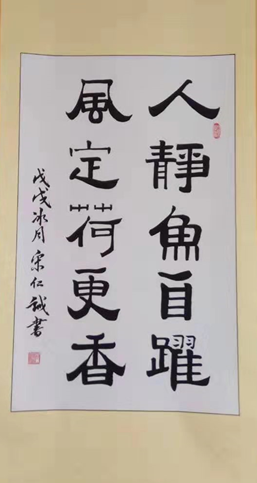 人靜魚自躍
風定荷更香
戊戌冰月宋仁誠書